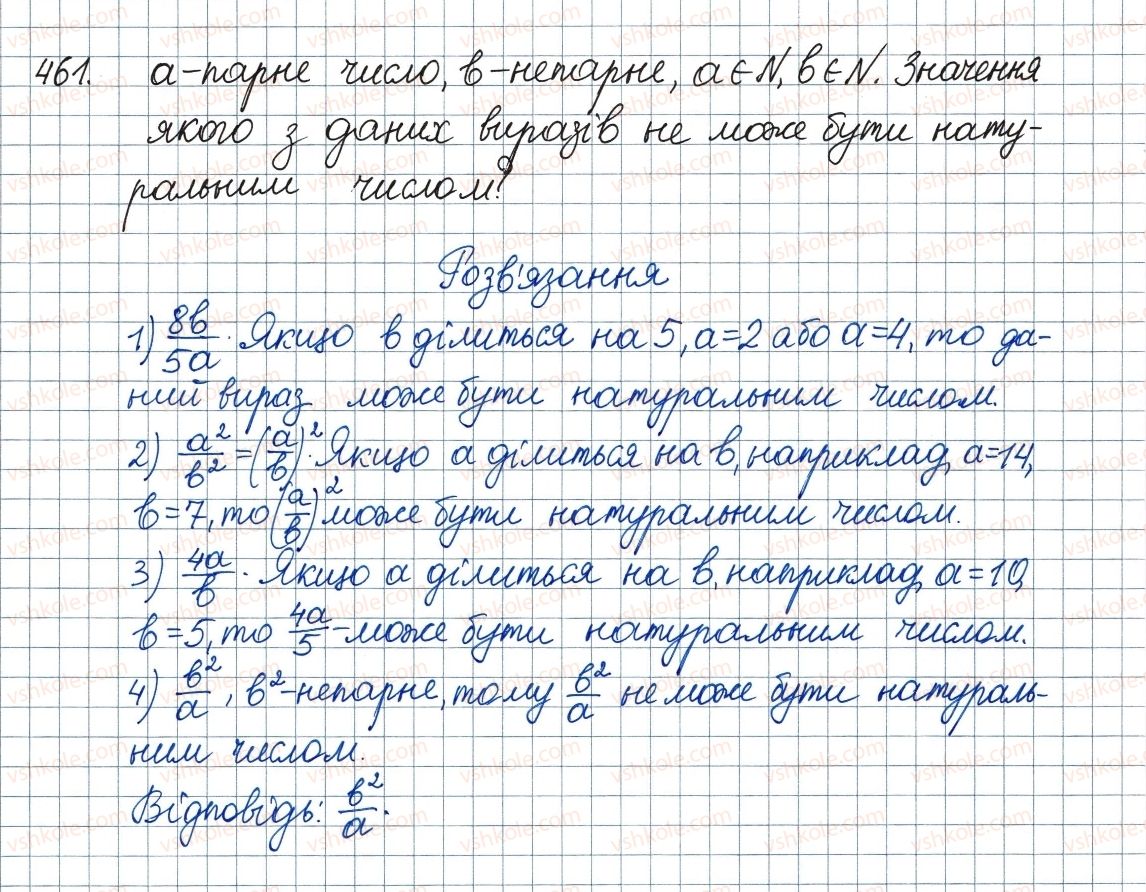 461. a-парне число, в-непарне, a∈N, в∈N. Значення
якого з даних виразів не може бути нату-
ральним числом?
Розв'язання
1) 8в/5a. Якщо в ділиться на 5, a=2 або a=4, то да-
ний вираз може бути натуральним числом.
2) a²/в² = (a/в)². Якщо a ділиться на в, наприклад, a=14,
в=7, то (a/в)² може бути натуральним числом.
3) 4a/в. Якщо a ділиться на в, наприклад, a=10,
в=5, то 4a/5 - може бути натуральним числом.
4) в²/a, в²-непарне, тому в²/a не може бути натураль-
ним числом.
Відповідь: в²/a.